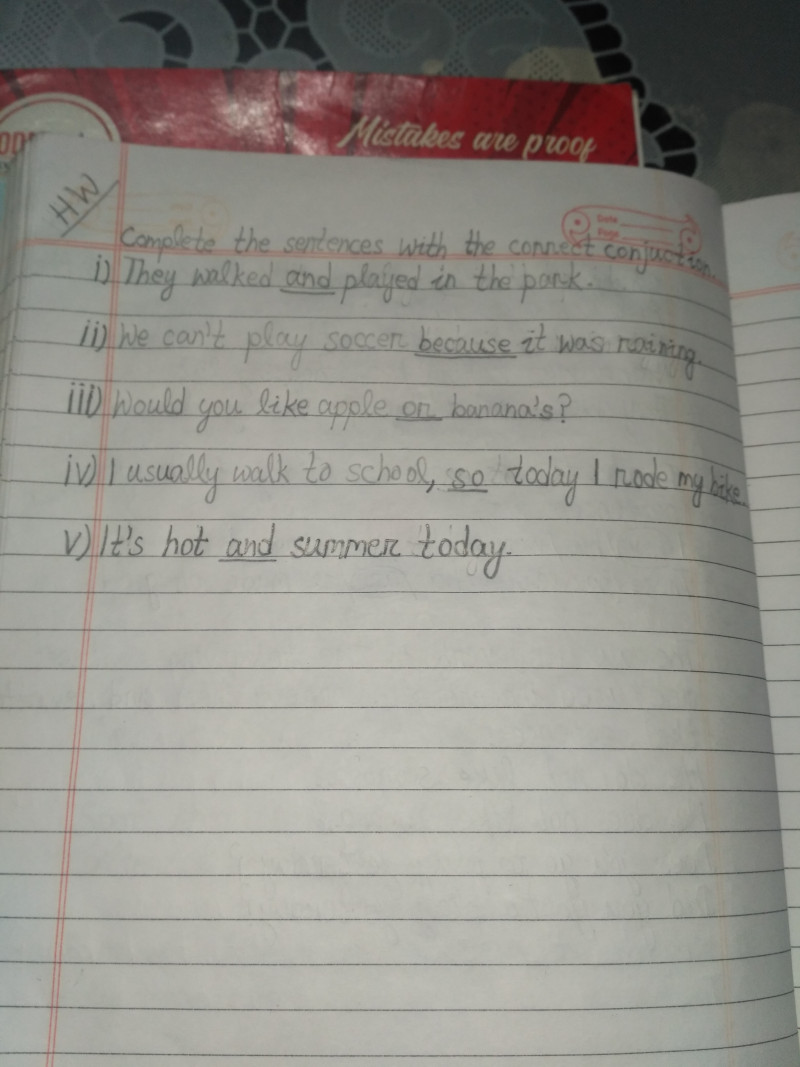 Mistakes are proof
HW
Date
Page
Complete the sentences with the correct conjuction.
i) They walked and played in the park.
ii) We can't play soccer because it was raining.
iii) Would you like apple or banana's?
iv) I usually walk to school, so today I rode my bike.
v) It's hot and summer today.